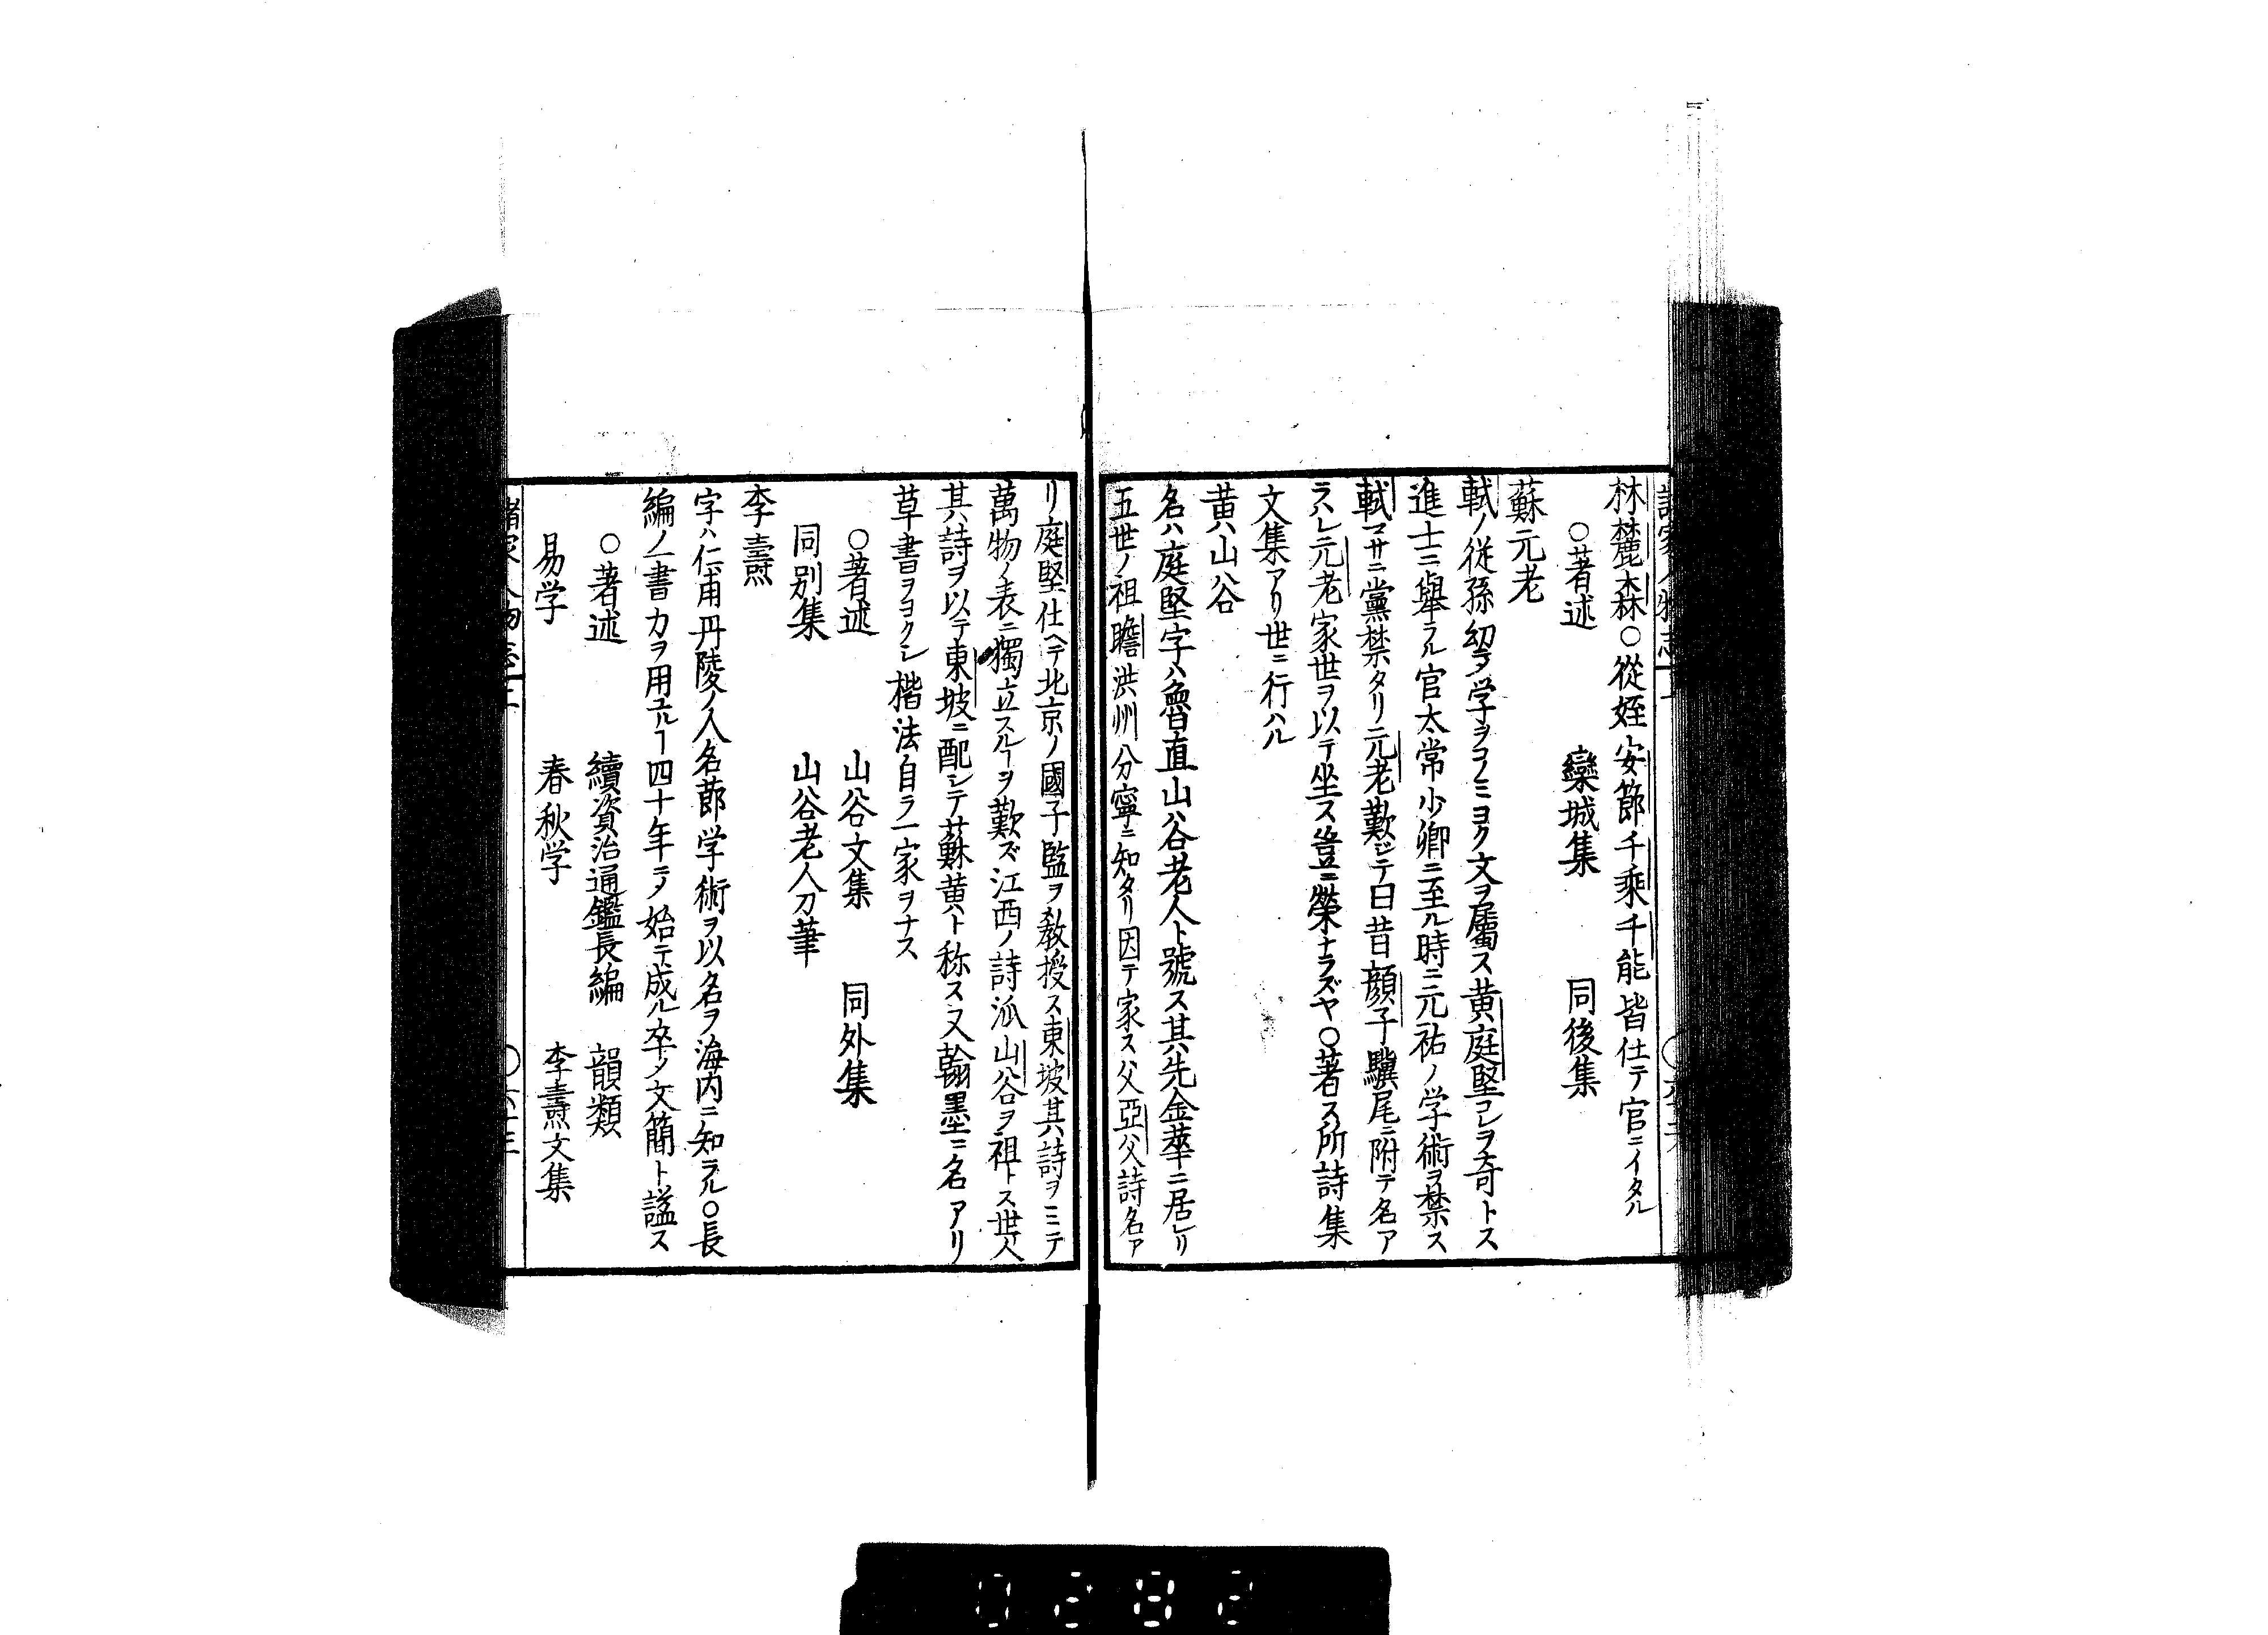 林麓森○從姪安節千乘千能皆仕テ官ニイタル
○著述　欒城集　同後集
蘇元老
軾ノ從孫幼ヨリ学ヲコノミヨク文ヲ屬ス黄庭堅コレヲ奇トス
進士ニ舉ラル官太常少卿ニ至ル時ニ元祐ノ学術ヲ禁ス
軾マサニ黨禁タリ元老歎ジテ曰昔顔子驥尾ニ附テ名ア
ラハレ元老家世ヲ以テ坐ス豈ニ榮ナラズヤ○著ス所詩集
文集アリ世ニ行ハル
黄山谷
名ハ庭堅字ハ魯直山谷老人ト號ス其先金華ニ居レリ
五世ノ祖瞻洪州分寧ニ知タリ因テ家ス父亞父詩名ア
リ庭堅仕ヘテ北京ノ國子監ヲ教授ス東坡其詩ヲミテ
萬物ノ表ニ獨立スルヿヲ歎ズ江西ノ詩派山谷ヲ祖トス世人
其詩ヲ以テ東坡ニ配シテ蘇黄ト称ス又翰墨ニ名アリ
草書ヲヨクシ楷法自ラ一家ヲナス
○著述　山谷文集　同外集
同別集　山谷老人刀筆
李燾
字ハ仁甫丹陵ノ人名莭学術ヲ以名ヲ海内ニ知ラル○長
編ノ一書力ヲ用ユルヿ四十年ニノ始テ成ル卒ノ文簡ト諡ス
○著述　續資治通鑑長編　韻類
易学　春秋学　李燾文集
諸家人物志
0282